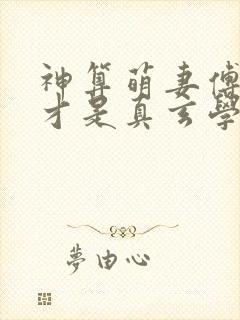 神算萌妻傅
才是真玄學
夢由心